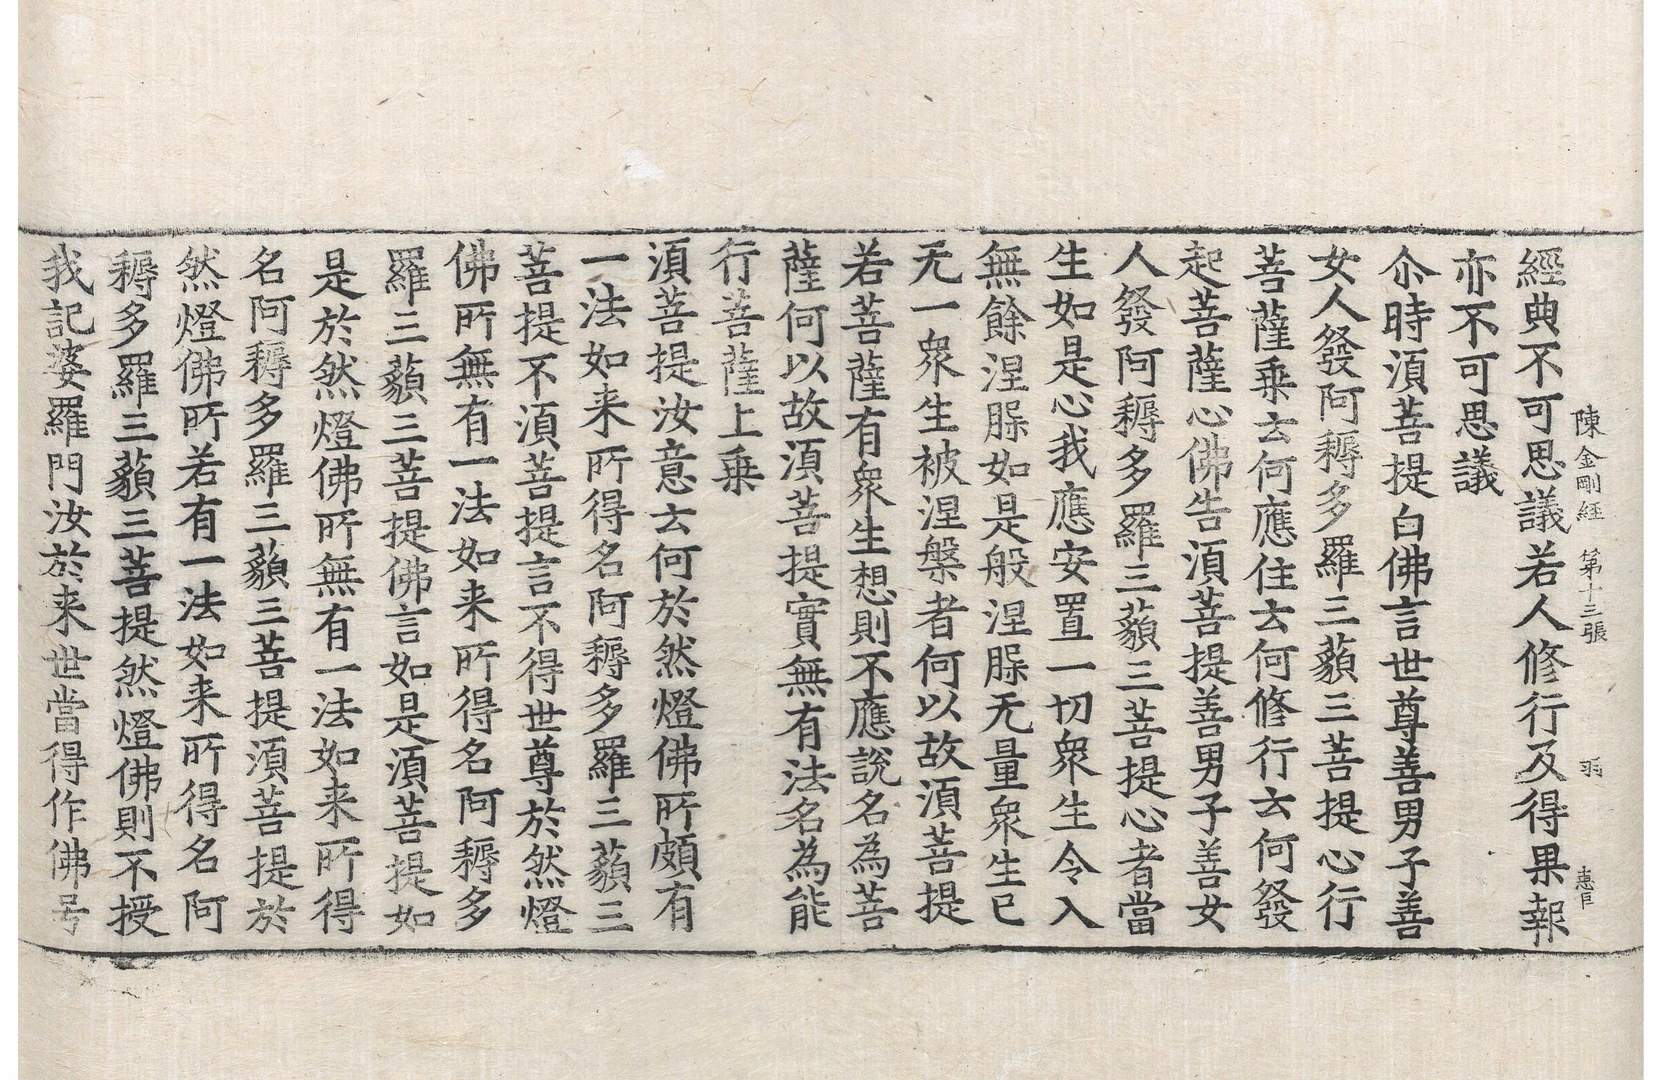 陳金剛經　第十三張　羽　惠臣
經典不可思議若人修行及得果報
亦不可思議
尒時湏菩提白佛言世尊善男子善
女人發阿耨多羅三藐三菩提心行
菩薩乗云何應住云何修行云何發
起菩薩心佛告湏菩提善男子善女
人發阿耨多羅三藐三菩提心者當
生如是心我應安置一切衆生令入
無餘涅槃如是般涅槃无量衆生已
无一衆生被涅槃者何以故湏菩提
若菩薩有衆生想則不應說名為菩
薩何以故湏菩提實無有法名為能
行菩薩上乗
湏菩提汝意云何於然燈佛所頗有
一法如来所得名阿耨多羅三藐三
菩提不湏菩提言不得世尊於然燈
佛所無有一法如来所得名阿耨多
羅三藐三菩提佛言如是湏菩提如
是於然燈佛所無有一法如来所得
名阿耨多羅三藐三菩提湏菩提於
然燈佛所若有一法如来所得名阿
耨多羅三藐三菩提然燈佛則不授
我記婆羅門汝於来世當得作佛号